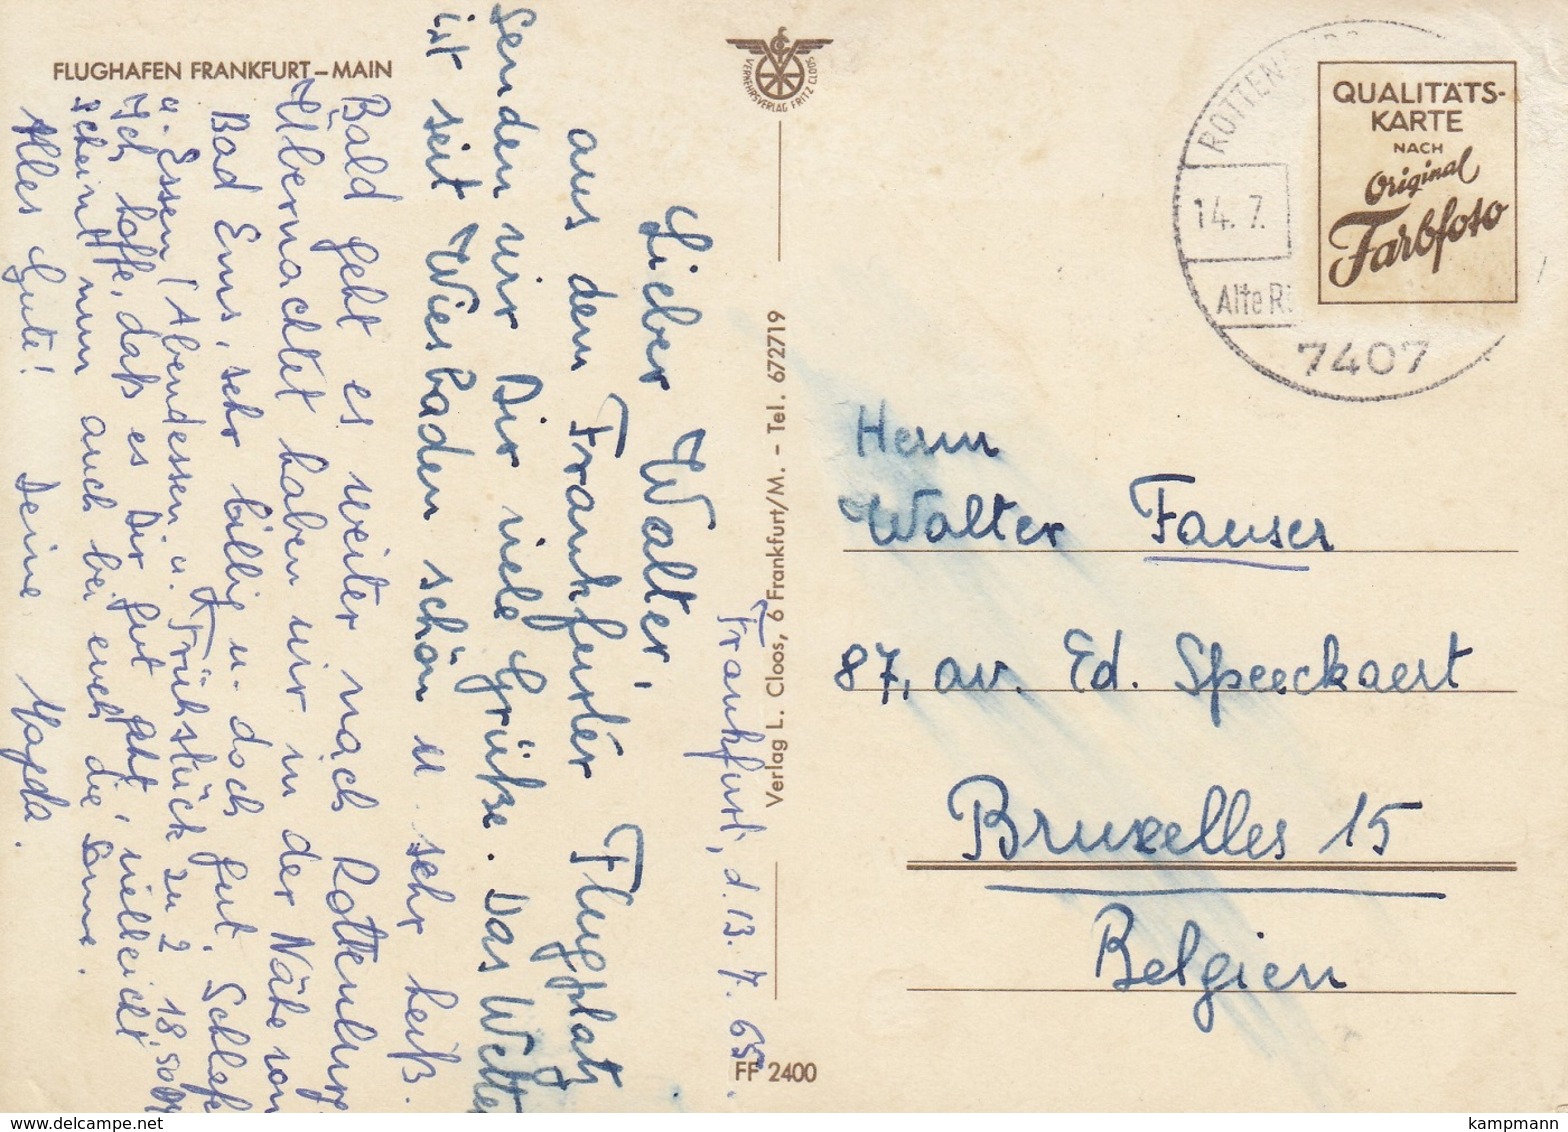 FLUGHAFEN FRANKFURT–MAIN
VERKEHRSVERLAG FRITZ CLOOS
Frankfurt, d. 13. 7. 65.
Lieber Walter,
aus dem Frankfurter Flugplatz
senden wir Dir viele Grüße. Das Wetter
ist seit Wiesbaden schön u sehr heiß.
Bald geht es weiter nach Rottenburg
Übernachtet haben wir in der Nähe von
Bad Ems, sehr billig u. doch gut. Schlafe
u. Essen (Abendessen u. Frühstück zu 2 18,50 DM
Ich hoffe, daß es Dir gut geht, vielleicht
scheint nun auch bei euch die Sonne.
Alles Gute! Deine Magda.
Verlag L. Cloos, 6 Frankfurt/M. – Tel. 672719
FF 2400
ROTTEN
14. 7.
Alte Rö
7407
QUALITÄTS-
KARTE
NACH
Original
Farbfoto
Herrn
Walter Fauser
87, av. Ed. Speeckaert
Bruxelles 15
Belgien
www.delcampe.net
kampmann